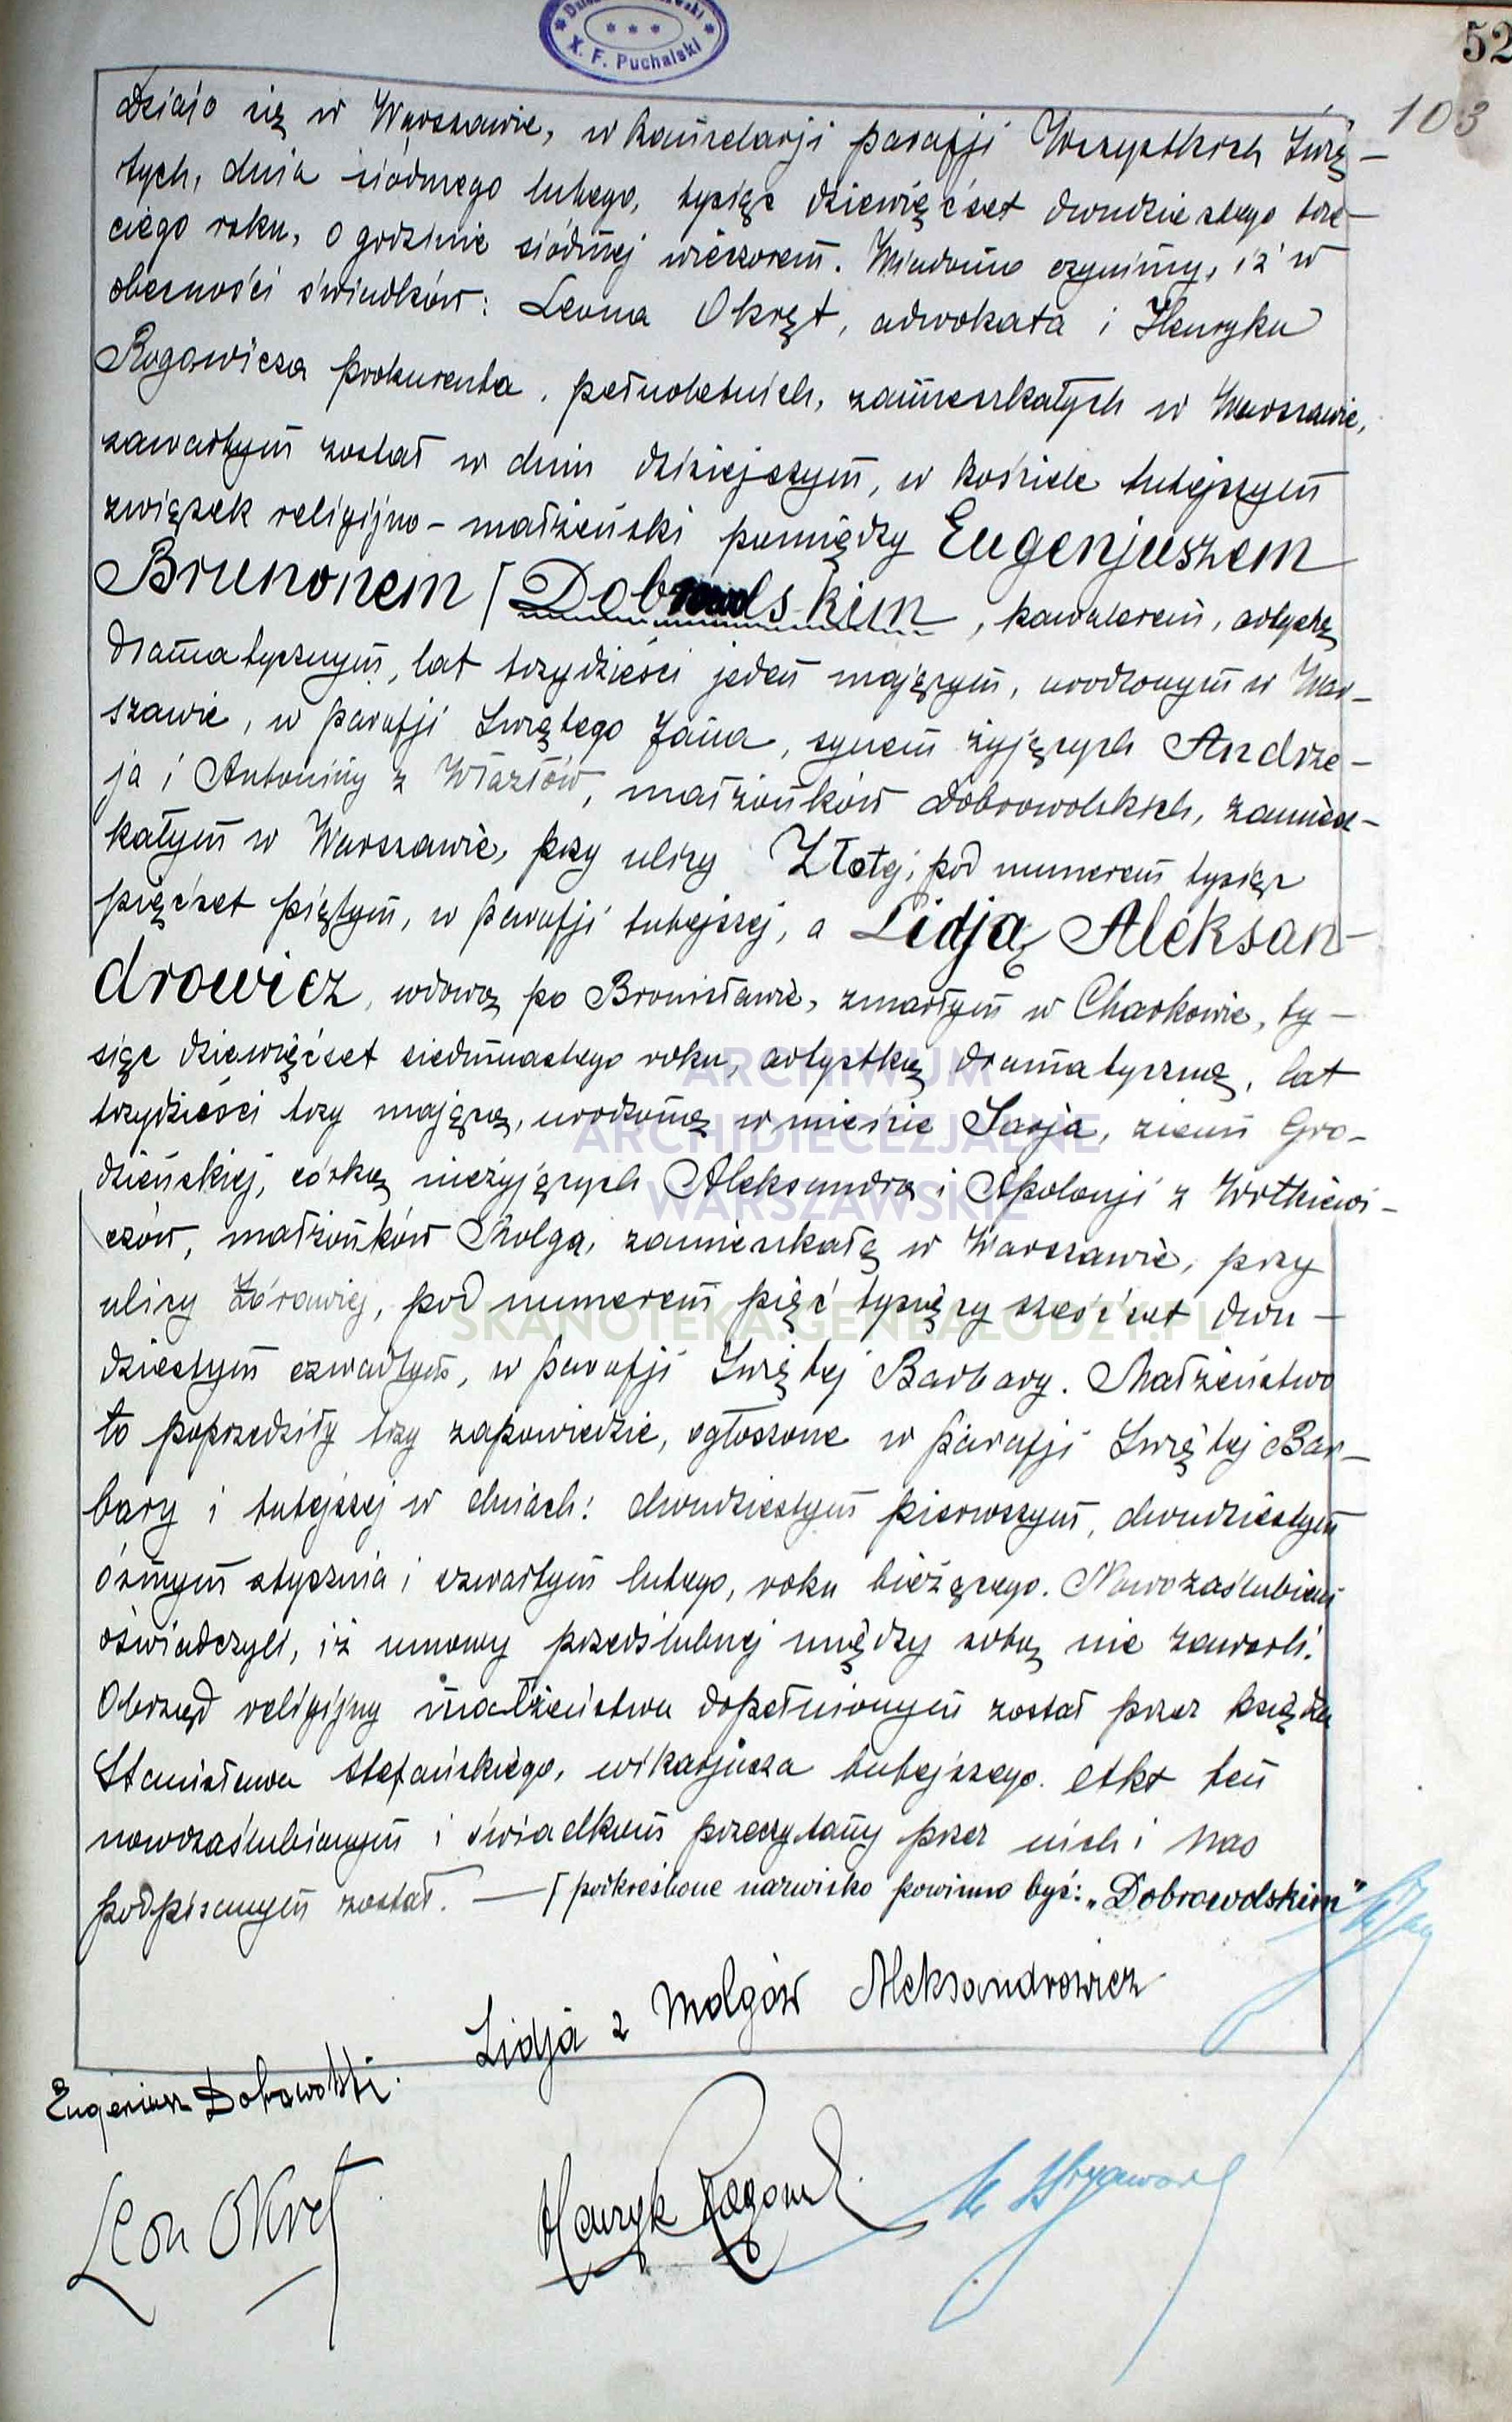 X. F. Puchalski
52
103
Działo się w Warszawie, w kancelarji parafji Wszystkich Świę-
tych, dnia siódmego lutego, tysiąc dziewięćset dwudziestego trze-
ciego roku, o godzinie siódmej wieczorem. Wiadomo czynimy, iż w
obecności świadków: Leona Okręt, adwokata i Henryka
Rogowicza prokurenta, pełnoletnich, zamieszkałych w Warszawie,
zawartym został w dniu dzisiejszym, w kościele tutejszym
związek religijno-małżeński pomiędzy Eugenjuszem
Brunonem ⌈ , kawalerem, artystą
dramatycznym, lat trzydzieści jeden mającym, urodzonym w War-
szawie, w parafji Świętego Jana, synem żyjących Andrze-
ja i Antoniny z małżonków Dobrowolskich, zamiesz-
kałym w Warszawie, przy ulicy Złotej, pod numerem tysiąc
pięćset piątym, w parafji tutejszej, a Lidją Aleksan-
drowicz, wdową po Bronisławie, zmarłym w Charkowie, ty-
siąc dziewięćset siedmnastego roku, artystką dramatyczną, lat
trzydzieści trzy mającą, urodzoną w mieście Sarja, ziemi Gro-
dzieńskiej, córką nieżyjących Aleksandra i Apolonji z Witkiewi-
czów, małżonków Molga, zamieszkałą w Warszawie, przy
ulicy Żórawiej, pod numerem pięć tysięcy sześćset dwu-
dziestym czwartym, w parafji Świętej Barbary. Małżeństwo
to poprzedziły trzy zapowiedzie, ogłoszone w parafji Świętej Bar-
bary i tutejszej w dniach: dwudziestym pierwszym, dwudziestym
ósmym stycznia i czwartym lutego, roku bieżącego. Nowozaślubieni
oświadczyli, iż umowy przedślubnej między sobą nie zawarli.
Obrzęd religijny małżeństwa dopełnionym został przez księdza
Stanisława Stefańskiego, wikarjusza tutejszego. Akt ten
nowozaślubionym i świadkom przeczytany przez nich i nas
podpisanym został. — ⌈ podkreślone nazwisko powinno być: „Dobrowolskim"
Lidja z Molgów Aleksandrowicz
Eugeniusz Dobrowolski.
Leon Okręt
Henryk
ARCHIWUM
ARCHIDIECEZJALNE
WARSZAWSKIE
SKANOTEKA.GENEALODZY.PL